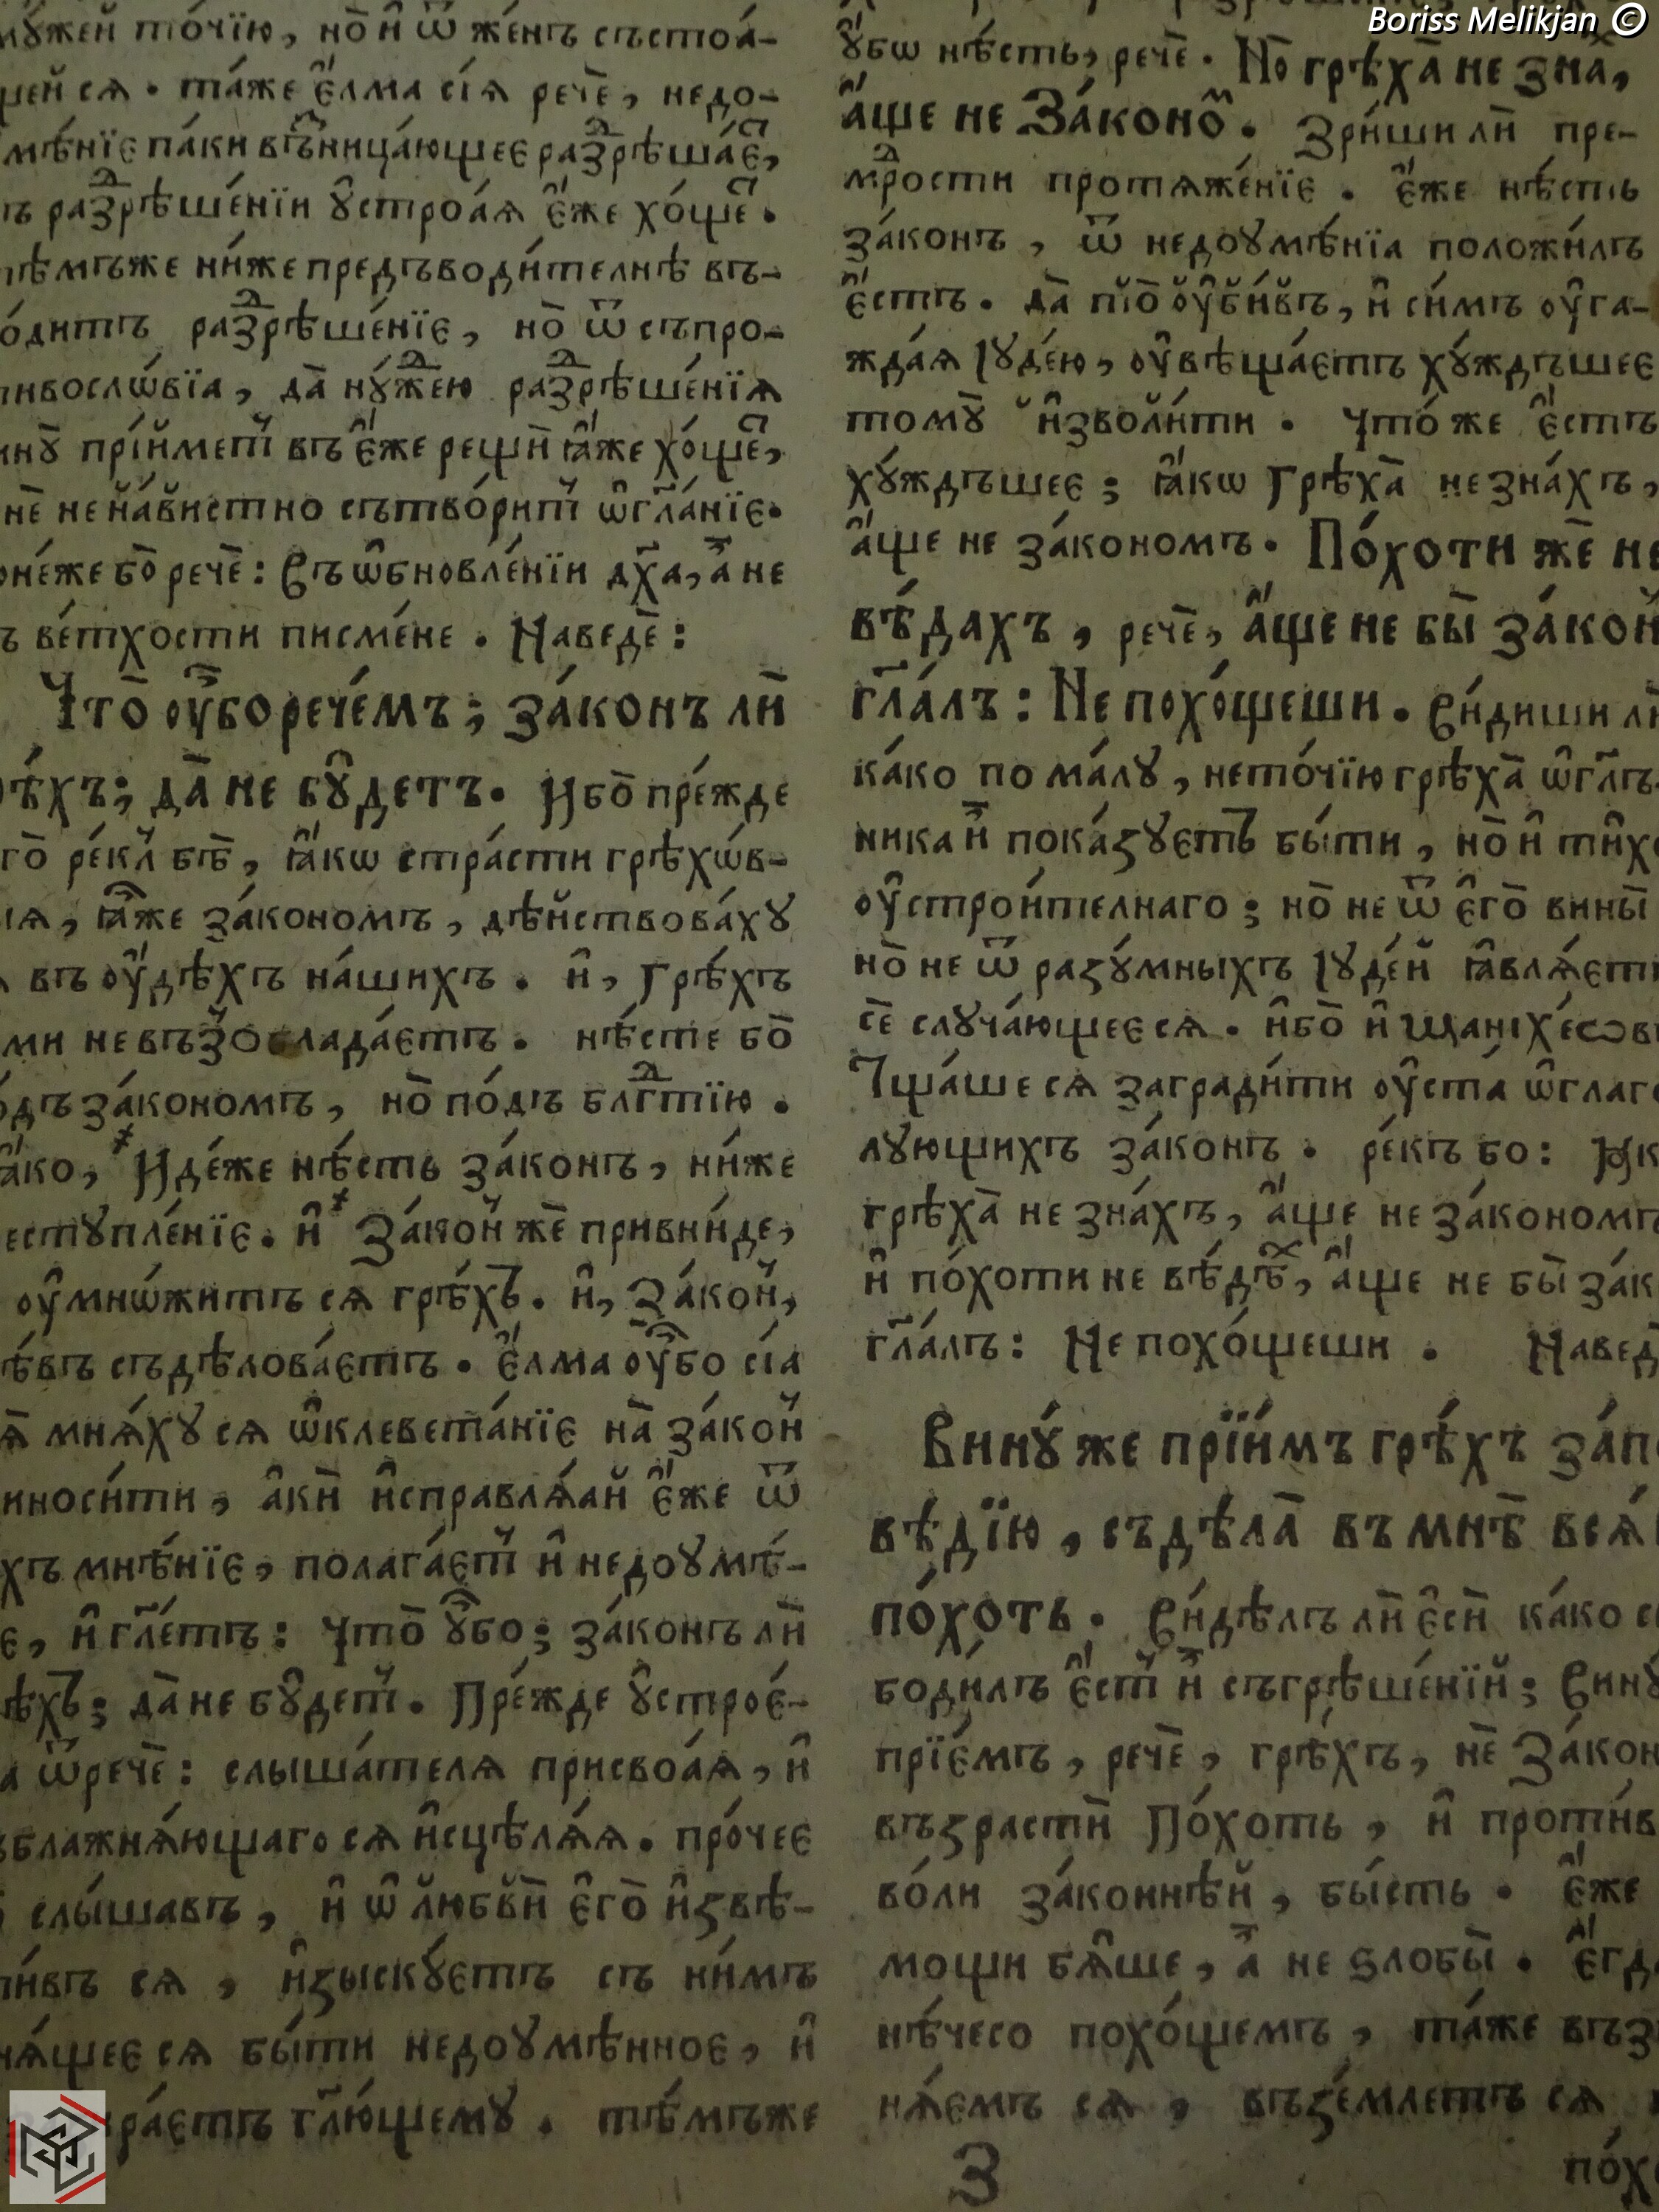 Boriss Melikjan ©
мꙋ́жей то́чїю, но̀ и҆ ѿ же́нъ състоѧ́-
щей сѧ . та́же є҆́лма сїѧ̀ речѐ, недо-
мѣ́нїе па́ки възницающее разрѣша́є,
ъ разрѣше́нїи ꙋ҆строа́ѧ є҆́же хо́ще .
тѣ́мъже ни́же предъводи́телнѣ въ-
о́дитъ разрѣше́нїе, но̀ ѿ съпро-
тивосло́вїа, да̀ нꙋ́жею разрѣше́нїѧ
инꙋ̀ прїи́мет въ є҆́же рещѝ ꙗ҆́же хо́ще,
нѐ нена́вистно сътво́рит ѡ҆гл҃а́нїе.
оне́же бо̀ речѐ: Въ ѡ҆бновле́нїи дх҃а, а҆ не
ъ ве́тхости писме́не . Наведѐ:
Что̀ ᲂу҆̀бо рече́мъ; зако́нъ лѝ
рѣ́хъ; да̀ не бꙋ҆́детъ. Ибо̀ пре́жде
го̀ ре́кл бѣ̀, ꙗ҆́кѡ стра́сти грѣхѡ́в-
ыѧ, ꙗ҆̀же за́кономъ, дѣ́йствова́хꙋ
въ ᲂу҆́дѣхъ на́шихъ . и҆, Грѣ́хъ
ми не въз̾обладáетъ . нѣ́сте бо̀
о́дъ за́кономъ, но̀ по́дъ блг҃тїю .
ꙗ҆́ко, Иде́же нѣ́сть за́конъ, ни́же
естꙋпле́нїе. и҆ За́кон жѐ привни́де,
ᲂу҆мно́житъ сѧ̀ грѣ́хъ. и҆, За́кон,
ѣ́въ съдѣлова́етъ . є҆́лма ᲂу҆̀бо сїа
ѧ̀ мнѧ́хꙋ сѧ ѡ҆клевета́нїе на̀ за́кон
иноси́ти, а҆кѝ и҆справлѧ́ай є҆́же ѿ
хъ мнѣ́нїе, полага́ет и҆ недоꙋмѣ́-
е, и҆ гл҃етъ: Что̀ ꙋ҆̀бо; за́конъ лѝ
ѣ́хъ; да̀ не бꙋ҆дет. Пре́жде ꙋ҆строе́-
а ѿречѐ: слыша́телѧ присвоа́ѧ, и҆
блажнѧ́ющаго сѧ и҆сцѣлѧ́ѧ. про́чее
слы́шавъ, и҆ ѡ҆ любвѝ є҆го̀ и҆звѣ-
ти́въ сѧ , и҆зыскꙋ́етъ съ ни́мъ
нѧ́щее сѧ бы́ти недоꙋмѣ́нное, и҆
ра́етъ гл҃ю́щемꙋ . тѣ́мъже
ꙋ҆́бѡ нѣ́сть, речѐ . Но̀ грѣха̀ не зна̀х,
а҆́ще не За́коном . Зри́ши лѝ пре-
мд҃рости протѧже́нїе . є҆́же нѣ́сть
за́конъ , ѿ недоꙋмѣ́нїа положи́лъ
є҆́стъ . да̀ то̀ ᲂу҆би́въ, и҆ си́мъ ᲂу҆га-
жда́ѧ Іꙋде́ю, ᲂу҆вѣща́етъ хꙋ́ждъшее
томꙋ̀ и҆зволи́ти . Что́ же є҆́стъ
хꙋ́ждъшее ; ꙗ҆́кѡ Грѣха̀ не зна́хъ,
а҆́ще не за́кономъ . По́хоти жѐ не
вѣ́дахъ , речѐ, а҆́ще не бы̀ за́кон
гл҃а́лъ : Не похо́щеши . Ви́диши лѝ
ка́ко по ма́лꙋ , не то́чїю грѣха̀ ѡ҆гл҃ъ
ника и҆̀ пока́зꙋетъ бы́ти , но̀ и҆ ти́хо
ᲂу҆строи́телнаго ; но̀ не ѿ є҆го̀ вины̀
но̀ не ѿ разꙋ́мныхъ Іꙋде́й ꙗ҆влѧ́ет
сѐ слꙋча́ющее сѧ . и҆бо̀ и҆ Манїхе́ѡв
Тща́ше сѧ загради́ти ᲂу҆ста́ ѡ҆глаго
лꙋющихъ за́конъ . ре́къ бо : Ꙗк
грѣха̀ не зна́хъ, а҆́ще не за́кономъ
и҆ по́хоти не вѣ́дѣх, а҆́ще не бы̀ зак
гл҃а́лъ : Не похо́щеши . Навед
Винꙋ́ же прїи́мъ грѣ́хъ за́по
вѣ́дїю , съдѣ́ла̀ въ мнѣ̀ всѧ́
по́хоть . Ви́дѣлъ лѝ є҆сѝ ка́ко с
боди́лъ є҆́ст и҆̀ съгрѣше́нїй ; Винꙋ
прїе́мъ , речѐ , грѣ́хъ , нѐ За́кон
възрастѝ По́хоть , и҆ проти́в
во́ли за́коннѣй , бы́сть . є҆́же
мощи бѧ́ше , а҆̀ не ѕлобы̀ . є҆́гд
нѣ́чесо похо́щемъ , та́же въз
нѧ́емъ сѧ , въземлетъ сѧ
З
по́х